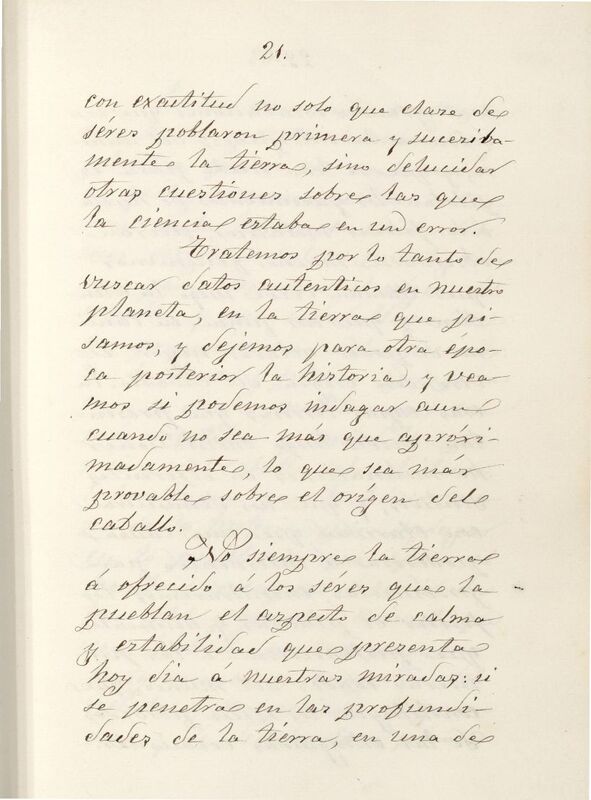 21.
con exactitud no solo que claze de
séres poblaron primera y sucesiba-
mente la tierra, sino delucidar
otras cuestiones sobre las que
la ciencia estaba en un error.
Tratemos por lo tanto de
vuscar datos autenticos en nuestro
planeta, en la tierra que pi-
samos, y dejemos para otra épo-
ca posterior la historia, y vea
mos si podemos indagar aun
cuando no sea más que apróxi-
madamente, lo que sea más
provable sobre el orígen del
caballo.
No siempre la tierra
á ofrecido á los séres que la
pueblan el aspecto de calma
y estabilidad que presenta
hoy dia á nuestras miradas: si
se penetra en las profundi-
dades de la tierra, en una de